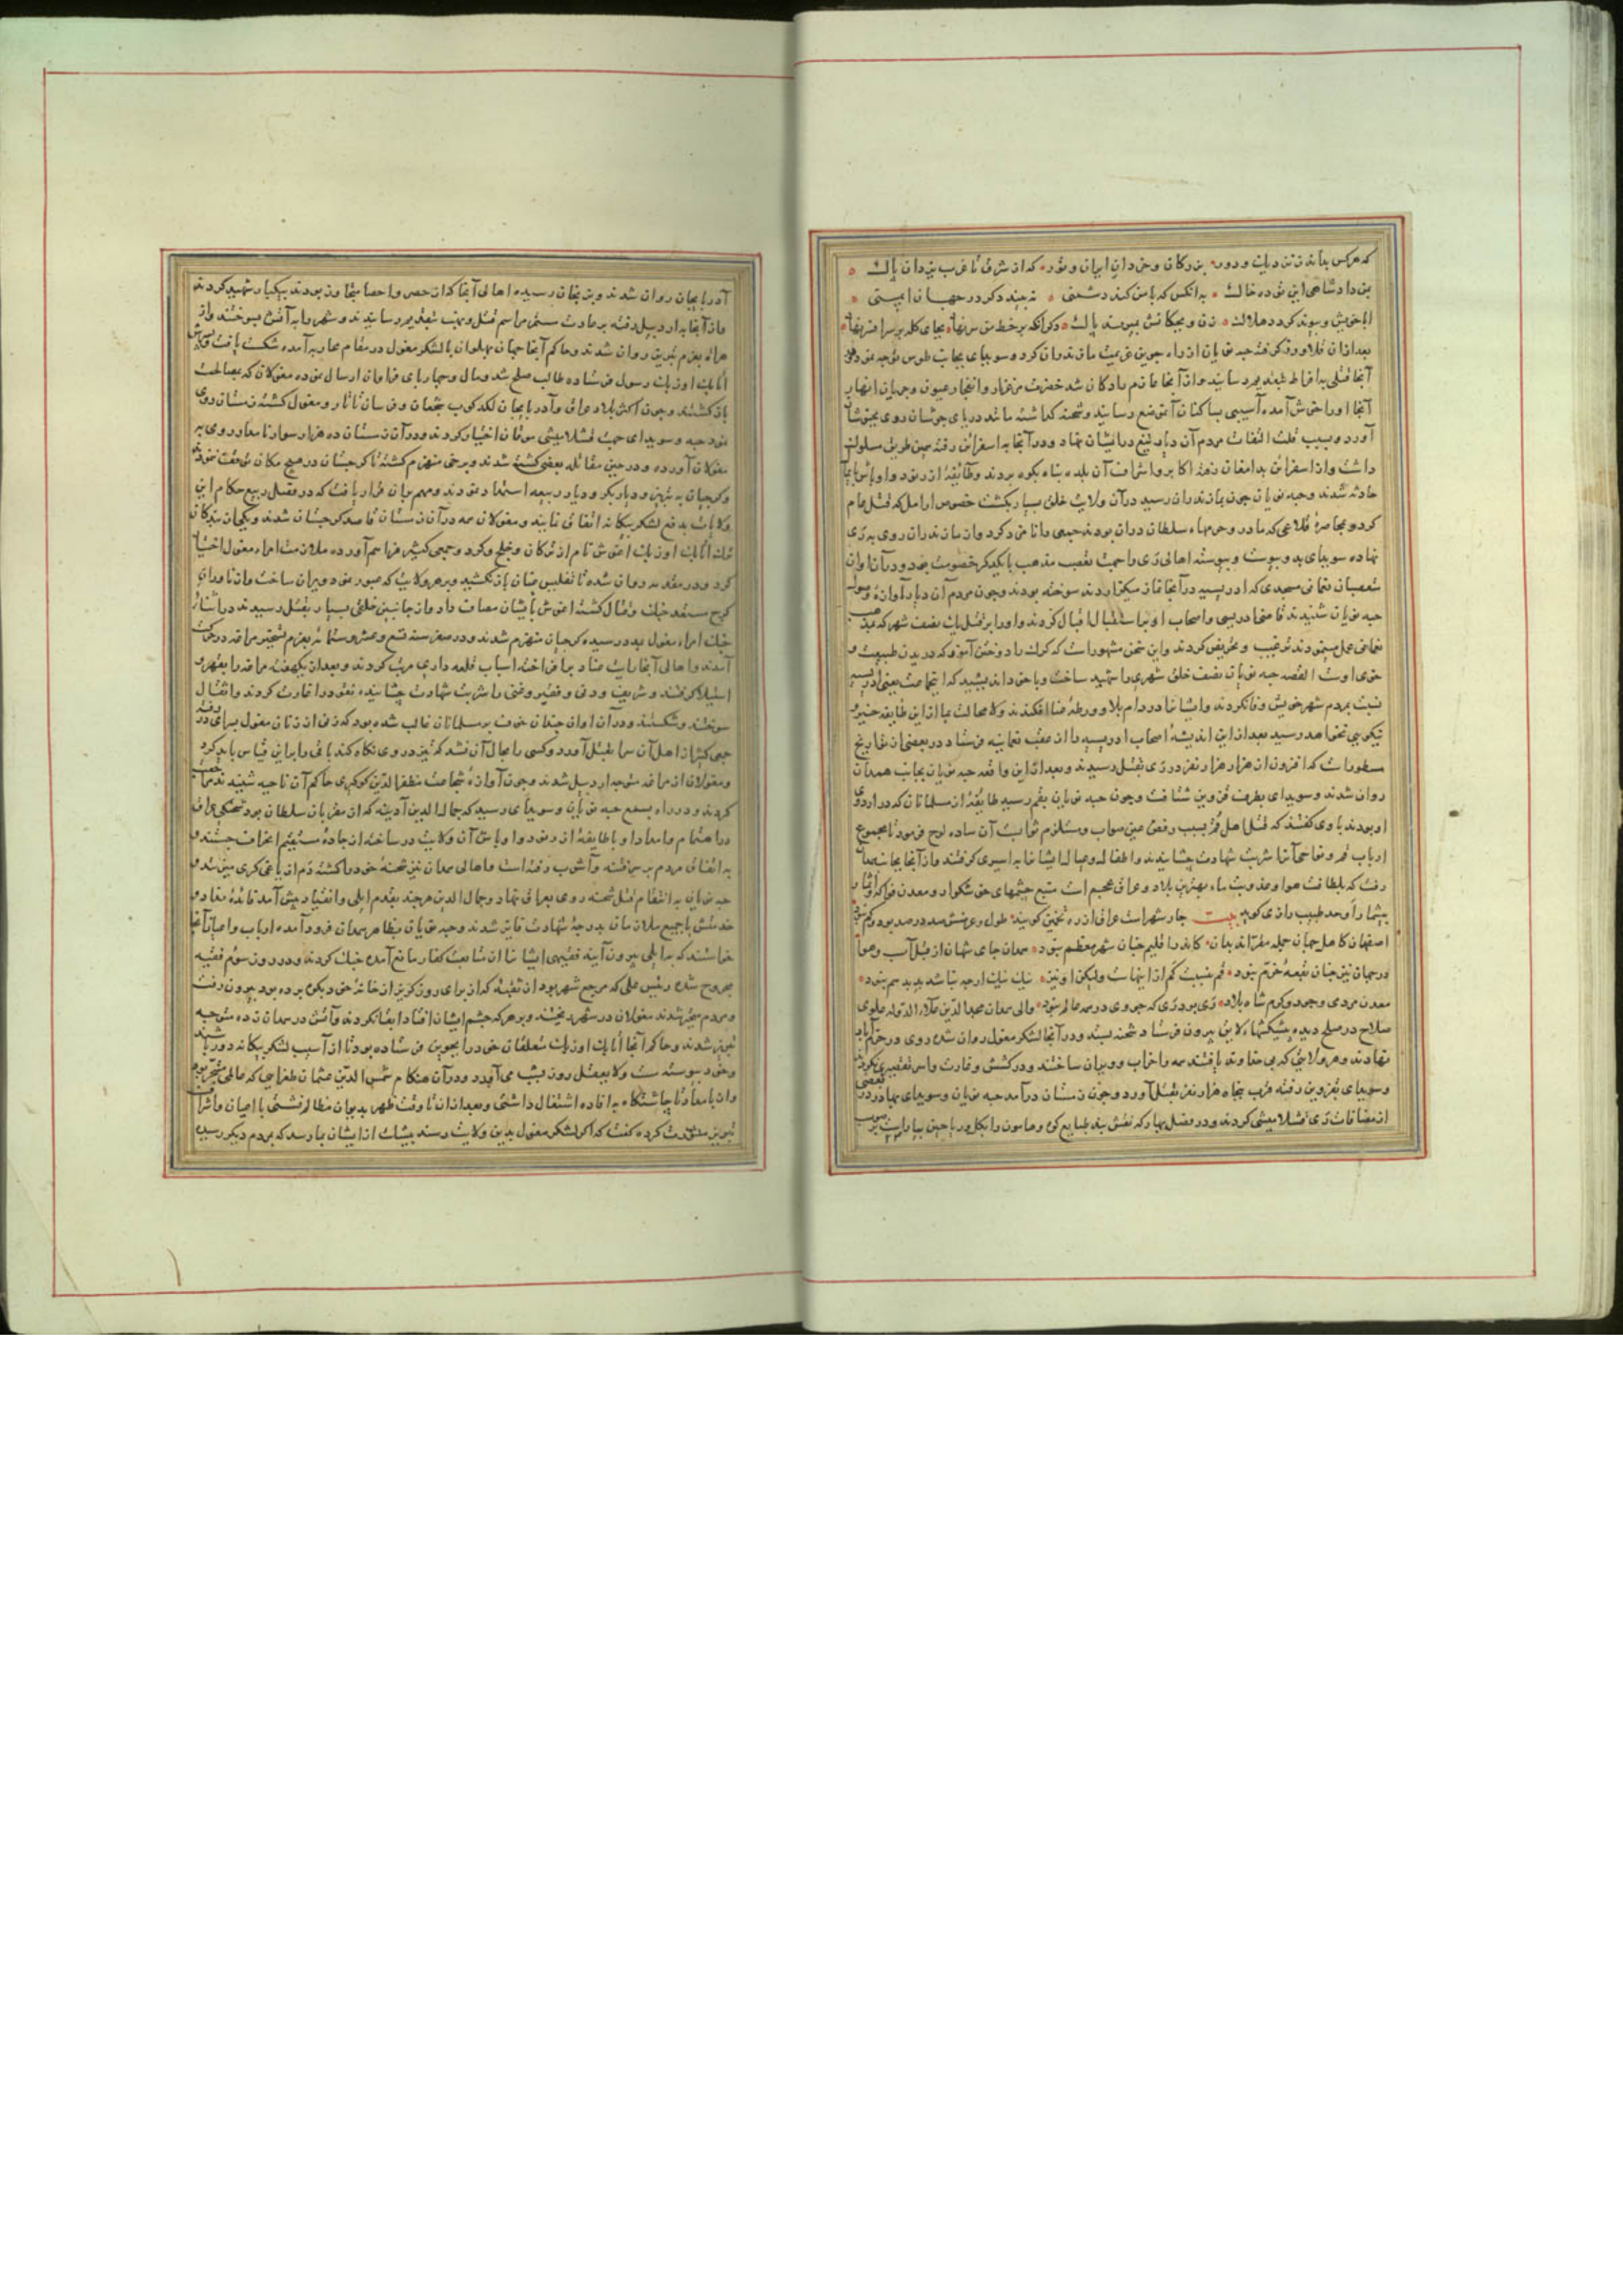 که هرکس بداند ز نزدیک و دور بزرگان و خردان ایران و تور که از شرق تا غرب یزدان پاک
بمن داد شاهی این توده خاک به انکس که با من کند دشمنی نه بیند دکر در جهان ایمنی
ابا خویش و پیوند کردد هلاک زن و بچکانش بمیرند پاک دکر آنکه بر خط من سر نهاد بجای کله بر سر افسر نهاد
بعد ازان قلاووز کرفته جبه نویان از راه جوین عزیمت مازندران کرد و سوبیدای بجانب طوس توجه نمود و در
آنجا قتلی به افراط بتقدیم رسانیده و از آنجا عازم رادکان شد خضرت مرغزار و انفجار عیون و جریان انهار
آنجا او را خوش آمده آسیبی بساکنان آن موضع نرسانید و شحنه کذاشته مانند دریای جوشان روی بخبوشان
آورد و بسبب قلت التفات مردم آن دیار تیغ در ایشان نهاد و از آنجا به اسفراین رفته همین طریق مسلوک
داشت و از اسفراین بدامغان رفته اکابر و اشراف آن بلده پناه بکوه بردند و طایفه از رنود و اوباش
حادثه شدند و جبه نویان چون بمازندران رسید در آن ولایت خلق بسیار بکشت خصوص در آمل که قتل عام
کرد و بمحاصرهٔ قلاعی که مادر و حرمهاء سلطان دران بودند جمعی را نامزد کرد و از مازندران روی به ری
نهاده سوبیدای بدو پیوست و پیوسته اهالی ری را جهت تعصب مذهب با یکدیکر خصومت بود و دران اوان
متعصبان نعمانی مسجدی که ادریسیه در آنجا نماز میکزاردند سوخته بودند و چون مردم آن دیار آوازهٔ وصول
جبه نویان شنیدند قاضی ادریسی و اصحاب او بر استقبال اقبال کردند و او را بر قتل یک نصف شهر که مذهب
نعمانی عمل مینمودند ترغیب و تحریض کردند و این سخن مشهور است که کرک را دوختن آموز که دریدن طبیعت و
خوی اوست القصه جبه نویان نصف خلق شهر را شهید ساخت و با خود اندیشید که اینجماعت یعنی ادریسیه
نسبت بمردم شهر خویش وفا نکردند و ایشانرا در دام بلا و ورطه فنا افکندند ولا محالت ما را از این طایفه خیر و
نیکویی نخواهد رسید بعد از این اندیشه اصحاب ادریسیه را از عقب نعمانیه فرستاد و در بعضی از تواریخ
مسطورست که افزون از هزار هزار نفر در ری بقتل رسیدند و بعد از این واقعه جبه نویان بجانب همدان
روان شدند و سوبیدای بطرف قزوین شتافت و چون جبه نویان بقم رسید طایفهٔ از مسلمانان که در اردوی
او بودند با وی کفتند که قتل اهل قم بسبب رفض عین صواب و مستلزم ثوابست آن ساده لوح فرمود تا مجموع
ارباب قم و نواحی آنرا شربت شهادت چشانیدند و اطفال و عیال ایشانرا به اسیری کرفتند و از آنجا بجانب همدان
رفت که بلطافت هوا و عذوبت ماء بهترین بلاد عراق عجم است منبع چشمهای خوشکوار و معدن فواکه و اثمار
بیشمار اوحد طبیب رازی کوید بیت چار شهر است عراق از ره تخمین کویند طول و عرضش صد در صد بود و کم نبود
اصفهان کاهل جهان جمله مقرند بدان کاندر اقلیم چنان شهر معظم نبود همدان جای شهان از قبل آب و هوا
در جهان نیز چنان بقعهٔ خرم نبود قم بنسبت کم ازاینهاست ولیکن او نیز نیک نیک ارچه نباشد بد بد هم نبود
معدن مردی و جود و کرم شاه بلاد ری بود ری که چو ری در همه عالم نبود والی همدان مجد الدین علاء الدوله علوی
صلاح در صلح دیده پیشکشهاء لایق بیرون فرستاد شحنه بستد و در آنجا لشکر مغول روان شده روی در خرم آباد
نهادند و هر ولایتی که بی خداوند یافتند همه را خراب و ویران ساختند و در کشش و غارت و اسر تقصیری نکردند
و سوبیدای بقزوین رفته قرب پنجاه هزار نفر بقتل آورد و چون زمستان درآمد جبه نویان و سوبیدای بهادر در بعضی
از مضافات ری قشلامیشی کردند و در فصل بهار که نقش بند طبایع کوه و هامون را بکل و ریاحین بیاراست
آذربایجان روان شدند و بزنجان رسیده اهالی آنجا که از حصر و احصا متجاوز بودند بیکبار شهید کردند
و از آنجا به اردبیل رفته بر عادت مستمر مراسم قتل و نهب بتقدیم رسانیدند و شهر را به آتش بسوختند و از
به عزم تبریز روان شدند و حاکم آنجا جهان پهلوان با لشکر مغول در مقام محاربه آمده شکست یافت
اتابک اوزبک رسول فرستاده طالب صلح شد و مال و چهارپای فراوان ارسال نموده مغولان که بمصالحت
باز کشتند و چون اکثر بلاد عراق و آذربایجان لکدکوب متجمعان و فرسان تاتار و مغول کشته زمستان روی
نمود جبه و سوبیدای جهت قشلامیشی موقان اختیار کردند و در آن زمستان ده هزار سوار نامدار روی به
مغولان آورده و در حین مقاتله بعضی کشته شدند و برخی منهزم کشته تا کرجستان در هیچ مکان توقف ننمودند
و کرجیان به تبریز و دیاربکر و دیار ربیعه استمداد نمودند و مهم بران قرار یافت که در فصل ربیع حکام این
ولایات به دفع لشکر بیکانه اتفاق نمایند و مغولان همه در آن زمستان قاصد کرجستان شدند و یکی از بندکان
ترک اتابک اوزبک اغوش نام از ترکان و خلج و کرد و جمعی کثیر فراهم آورده ملازمت امراء مغول اختیار
کرد و در مقدمه روان شده تا تفلیس عنان باز نکشید و بر هر ولایتی که عبور نمود ویران ساخت و از ماورای
کرج مستعد جنک و قتال کشته اغوش با ایشان مصاف داد و از جانبین خلقی بسیار بقتل رسیدند در اثناء
جنک امراء مغول بمدد رسیده کرجیان منهزم شدند و در صفر سنه تسع و عشر و ستمائه بعزم تسخیر مراغه در حرکت
آمدند و اهالی آنجا رایت عناد برافراخته اسباب قلعه داری مرتب کردند و بعد از یکهفته مراغه را بقهر و
استیلا کرفتند و شریف و دنی و فقیر و غنی را شربت شهادت چشانیده نقود را غارت کردند و اثقال
سوختند و شکستند و در آن اوان چندان خوف بر مسلمانان غالب شده بود که زنی از زنان مغول بسرای در رفته
جمعی کثیر از اهل آن سرا بقتل آورد و کسی را مجال آن نشد که تیز در وی نکاه کند باقی را بر این قیاس باید کرد
و مغولان از مراغه متوجه اردبیل شدند و چون آوازهٔ شجاعت مظفر الدین کوکبری حاکم آن ناحیه شنیدند
کردند و در راه بسمع جبه نویان و سوبیدای رسید که جمال الدین آدینه که از مقربان سلطان بود
با طایفهٔ از رنود و اوباش آن ولایت در ساخته از جادهٔ مستقیم انحراف جستند و
به اتفاق مردم بر سر فتنه و آشوب رفته است و اهالی همدان نیز شحنهٔ خود را کشته دم از یاغی کری میزنند و
جبه نویان به انتقام قتل شحنه روی بعراق نهاد و جمال الدین هرچند بقدم ایلی و انقیاد پیش آمد فایدهٔ نداد و
خدمتش با جمیع ملازمان بدرجهٔ شهادت فایز شدند و جبه نویان بظاهر همدان فرود آمده ارباب و اعیان آنجا
خواستند که به ایلی بیرون آیند فقیهی ایشانرا از متابعت کفار مانع آمده جنک کردند و در روز سوم فقیه
مجروح شده رئیس علی که مرجع شهر بود از نقبی که از برای روز کریز از خانه خود بکوه برده بود بیرون رفت
و مردم متحیر شدند مغولان در شهر ریختند و بر هرکه چشم ایشان افتاد ابقا نکردند و آتش در همدان زده متوجه
تبریز شدند و حاکم آنجا اتابک اوزبک متعلقان خود را بخوی فرستاده بود تا از آسیب لشکر بیکانه دور باشند
و خود پیوسته مست و لا یعقل روز بشب می آورد و در آن هنکام شمس الدین عثمان طغرایی که عالمی متبحر بود
و از بامداد تا چاشتکاه به افاده اشتغال داشتی و بعد ازان تا وقت ظهر بدیوان مظالم نشستی با اعیان و اشراف
تبریز مشورت کرده کفت که اکر لشکر مغول بدین ولایت رسند بیشک از ایشان بما رسد که بمردم دیکر رسیده